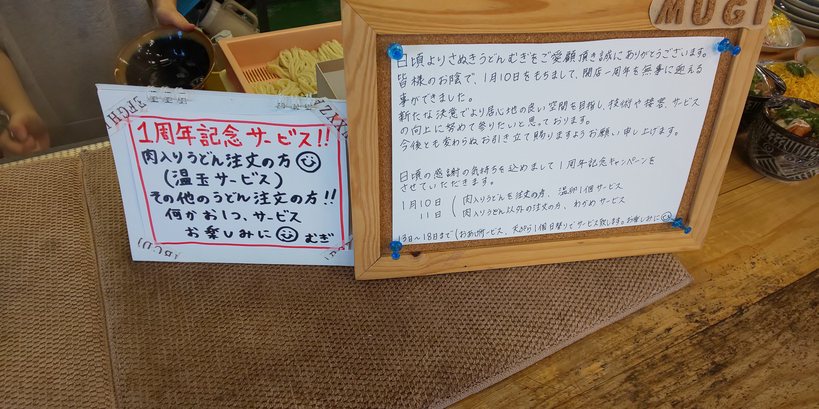 1周年記念サービス!!
肉入りうどん注文の方
(温玉サービス)
その他のうどん注文の方!!
何かお1つ、サービス
お楽しみに むぎ
MUGI
日頃よりさぬきうどんむぎをご愛顧頂き誠にありがとうございます。
皆様のお陰で、1月10日をもちまして、開店一周年を無事に迎える
事ができました。
新たな決意でより居心地の良い空間を目指し、技術や接客、サービス
の向上に努めて参りたいと思っております。
今後とも変わらぬお引き立て賜りますようお願い申し上げます。
日頃の感謝の気持ちを込めまして1周年記念キャンペーンを
させていただきます。
1月10日 肉入りうどんを注文の方、温卵1個サービス
11日 肉入りうどん以外の注文の方、わかめサービス
13日〜18日まで(おあげサービス、天ぷら1個日替りでサービス致します。お楽しみに